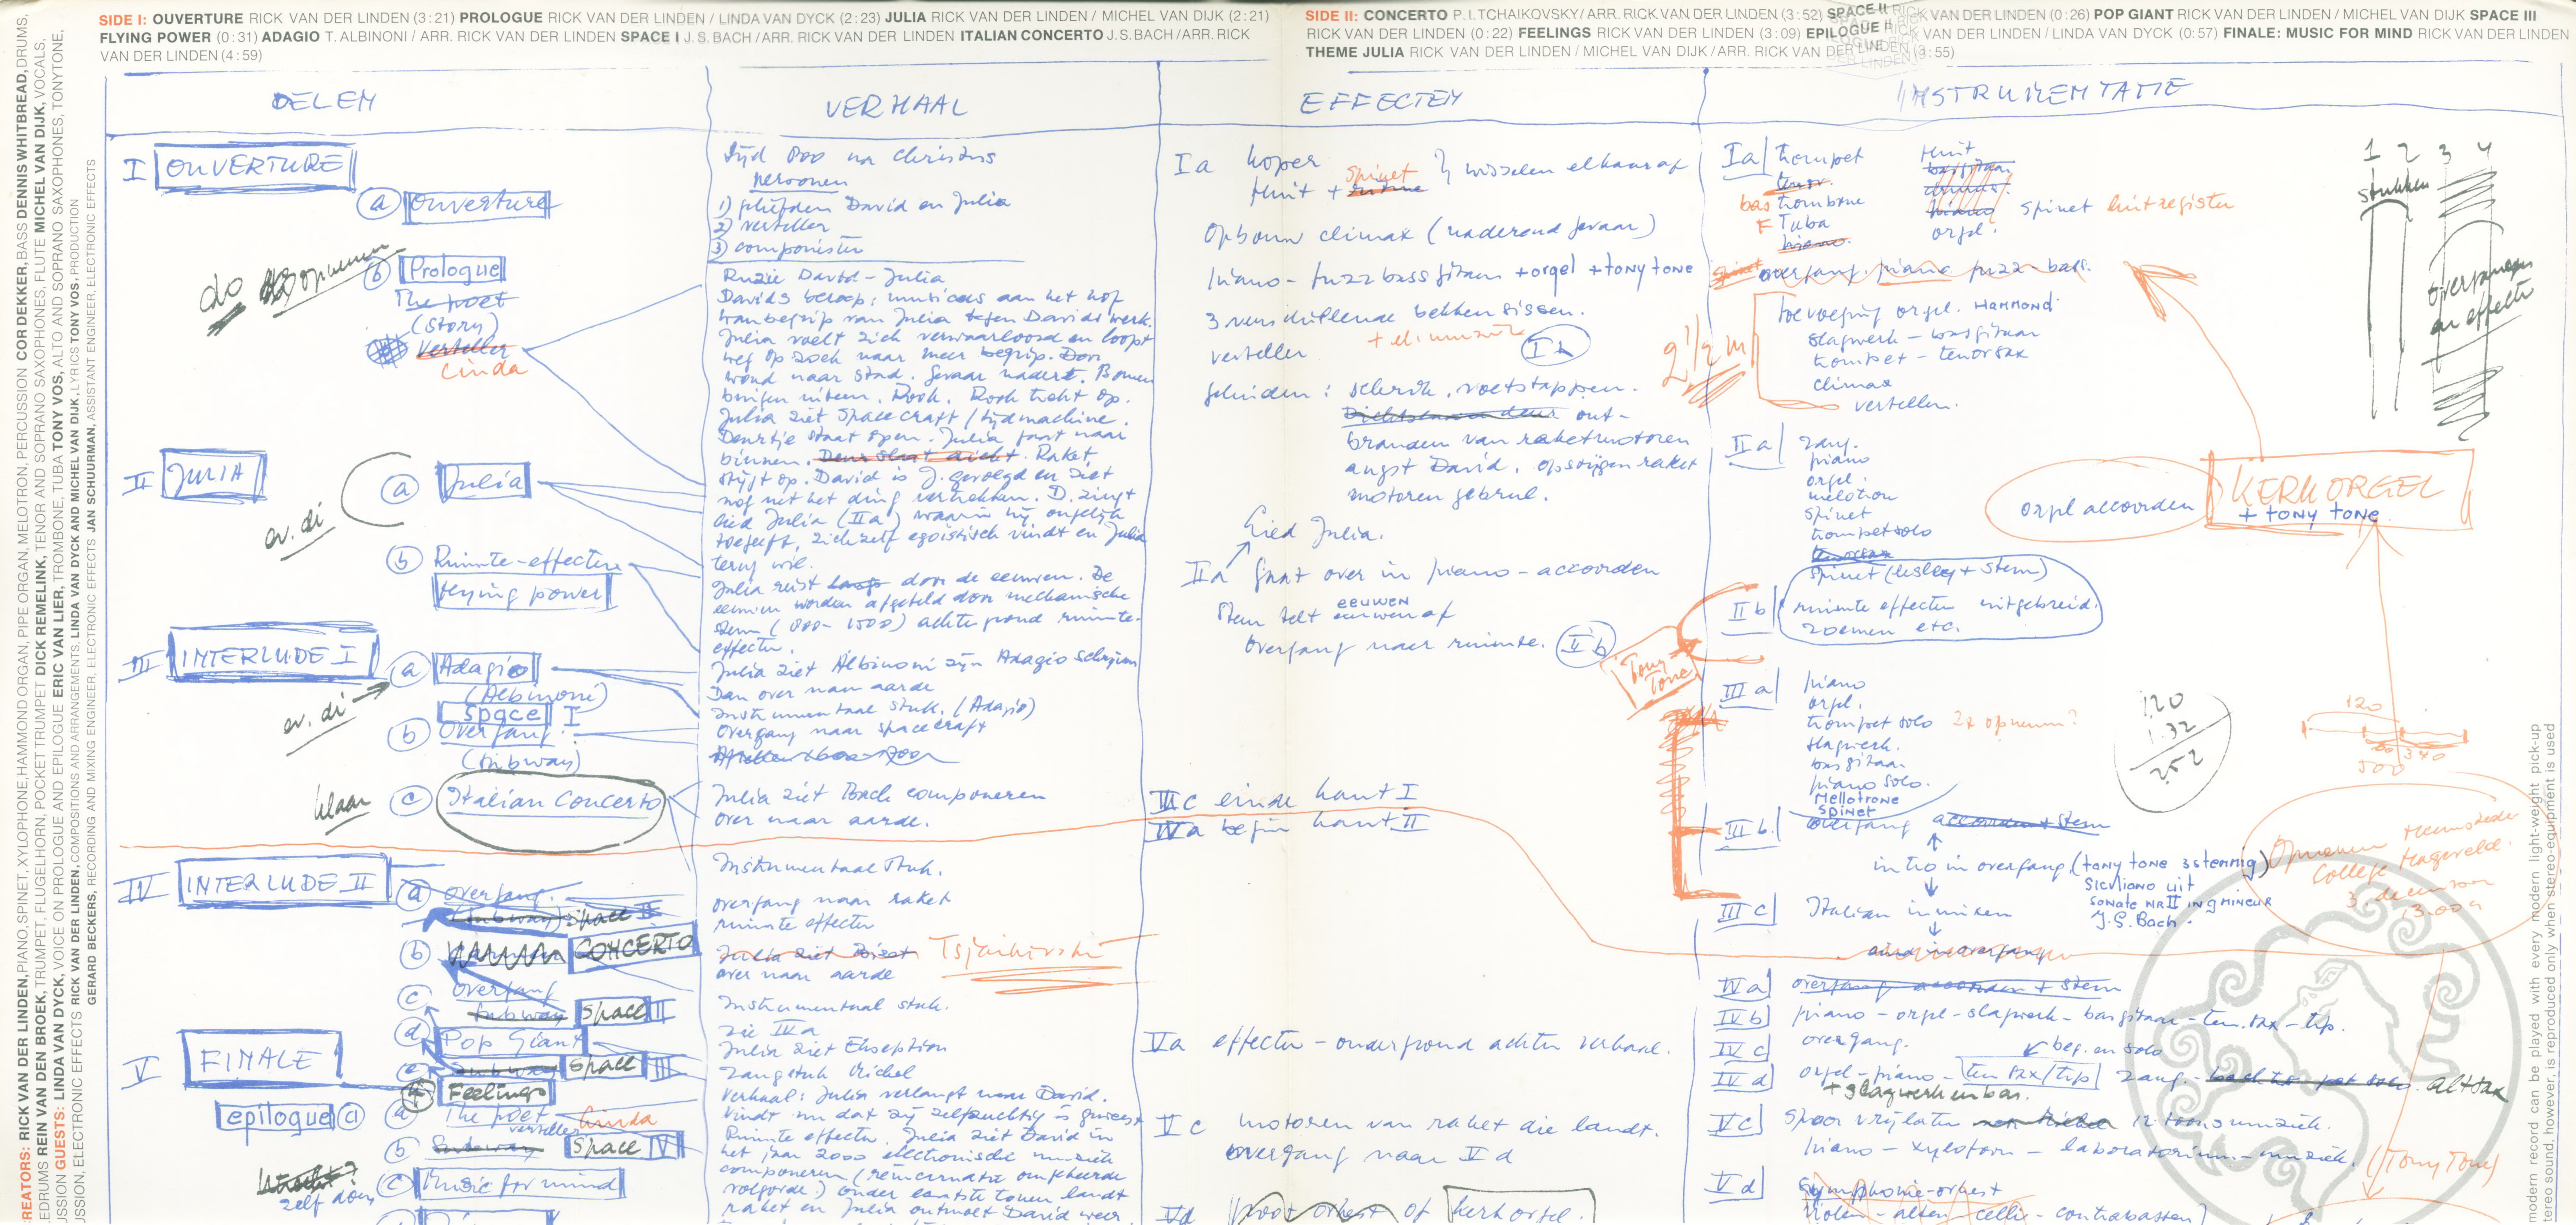 SIDE I: OUVERTURE RICK VAN DER LINDEN (3:21) PROLOGUE RICK VAN DER LINDEN / LINDA VAN DYCK (2:23) JULIA RICK VAN DER LINDEN / MICHEL VAN DIJK (2:21)
FLYING POWER (0:31) ADAGIO T. ALBINONI / ARR. RICK VAN DER LINDEN SPACE I J.S. BACH/ARR. RICK VAN DER LINDEN ITALIAN CONCERTO J.S. BACH/ARR. RICK
VAN DER LINDEN (4:59)
SIDE II: CONCERTO P.I. TCHAIKOVSKY/ARR. RICK VAN DER LINDEN (3:52) SPACE II RICK VAN DER LINDEN (0:26) POP GIANT RICK VAN DER LINDEN / MICHEL VAN DIJK SPACE III
RICK VAN DER LINDEN (0:22) FEELINGS RICK VAN DER LINDEN (3:09) EPILOGUE RICK VAN DER LINDEN / LINDA VAN DYCK (0:57) FINALE: MUSIC FOR MIND RICK VAN DER LINDEN
THEME JULIA RICK VAN DER LINDEN / MICHEL VAN DIJK /ARR. RICK VAN DER LINDEN (3:55)
CREATORS: RICK VAN DER LINDEN, PIANO, SPINET, XYLOPHONE, HAMMOND ORGAN, PIPE ORGAN, MELOTRON, PERCUSSION COR DEKKER, BASS DENNIS WHITBREAD, DRUMS,
EDRUMS REIN VAN DEN BROEK, TRUMPET, FLUGELHORN, POCKET TRUMPET DICK REMELINK, TENOR AND SOPRANO SAXOPHONES, FLUTE MICHEL VAN DIJK, VOCALS,
USSION GUESTS: LINDA VAN DYCK, VOICE ON PROLOGUE AND EPILOGUE ERIC VAN LIER, TROMBONE, TUBA TONY VOS, ALTO AND SOPRANO SAXOPHONES, TONYTONE,
USSION, ELECTRONIC EFFECTS RICK VAN DER LINDEN, COMPOSITIONS AND ARRANGEMENTS. LINDA VAN DYCK AND MICHEL VAN DIJK, LYRICS TONY VOS, PRODUCTION
GERARD BECKERS, RECORDING AND MIXING ENGINEER, ELECTRONIC EFFECTS JAN SCHUURMAN, ASSISTANT ENGINEER, ELECTRONIC EFFECTS
DELEN
I OUVERTURE
a ouverture
do
b Prologue
The poet
(story)
verteller
Linda
II JULIA
a Julia
av. di
b Ruimte-effecten
flying power
III INTERLUDE I
a Adagio
(Albinoni)
Space I
av. di
b Overgang
(subway)
klaar
c Italian Concerto
IV INTERLUDE II
a overgang
(subway) space II
b CONCERTO
c overgang
subway Space II
d Pop Giant
e subway Space III
f Feelings
V FINALE
epilogue a
a The poet Linda
verteller
b Subway Space IV
zelf doen
c Music for mind
VERHAAL
Tijd 800 na Christus
Personen
1) geliefden David en Julia
2) verteller
3) componisten
Ruzie David - Julia
Davids beroep: musicus aan het hof
wanbegrip van Julia tegen Davids werk.
Julia voelt zich verwaarloosd en loopt
weg op zoek naar meer begrip. Door
woud naar stad. Gevaar nadert. Bomen
buigen uiteen. Rook. Rook trekt op.
Julia ziet Spacecraft / tijdmachine.
Deurtje staat open. Julia gaat naar
binnen. Deur slaat dicht. Raket
stijgt op. David is J. gevolgd en ziet
nog net het ding vertrekken. D. zingt
lied Julia (IIa) waarin hij ongelijk
toegeeft, zichzelf egoistisch vindt en Julia
terug wil.
Julia reist langs door de eeuwen. De
eeuwen worden afgeteld door mechanische
stem (800-1500) achtergrond ruimte-
effecten.
Julia ziet Albinoni zijn Adagio schrijven
Dan over naar aarde
Instrumentaal stuk. (Adagio)
overgang naar spacecraft
Julia ziet Bach componeren
over naar aarde.
Instrumentaal stuk.
overgang naar raket
ruimte effecten
Julia ziet Bizet Tsjaikovski
over naar aarde
Instrumentaal stuk.
zie IVa
Julia ziet Ekseption
zangstuk Michel
Verhaal: Julia verlangt naar David.
Vindt nu dat zij zelfzuchtig is geweest
Ruimte effecten. Julia ziet David in
het jaar 2000 electronische muziek
componeren (reincarnatie omgekeerde
volgorde) onder laatste tonen landt
raket en Julia ontmoet David weer
EFFECTEN
Ia koper
fluit + spinet } wisselen elkaar af
Opbouw climax (naderend gevaar)
piano - fuzz bassgitaar + orgel + tony tone
3 verschillende bekkens sissen.
verteller
Ib
geluiden: schrik, voetstappen.
Dichtslaan deur ont-
branden van raketmotoren
angst David, opstijgen raket
motoren gebrul.
Lied Julia.
IIa gaat over in piano-accoorden
stem telt eeuwen af
overgang naar ruimte. IIb
Tony Tone
IIIc einde kant I
IVa begin kant II
Va effecten - ondergrond achter verhaal.
Vc motoren van raket die landt.
overgang naar Vd
Vd groot orkest of kerkorgel.
INSTRUMENTATIE
Ia trompet fluit
tenor. basgitaar
bas trombone drums
F Tuba piano spinet luitregister
piano. orgel.
overgang. piano fuzz-bass.
2½ m
toevoeging orgel. HAMMOND
slagwerk - basgitaar
trompet - tenorsax
climax
verteller.
1 2 3 4
stukken
overgangen
en effecten
IIa zang.
piano
orgel.
melotron
spinet
trompetsolo
tenorsax
spinet (lesley + stem)
orgel accoorden
KERKORGEL
+ TONY TONE
IIb ruimte effecten uitgebreid.
zoemen etc.
IIIa piano
orgel.
trompet solo 2x opnemen?
slagwerk.
basgitaar
piano solo.
Mellotrone
SPINET
120
1.32
252
120
500
340
IIIb. overgang accoorden + stem
intro in overgang (TONY TONE 3 stemmig)
SICILIANO uit
SONATE NR II IN G MINEUR
J.S. Bach.
Opnemen Heemstede
College Hageveld.
3 december
IIIc Italian in mixen
IVa overgang accoorden + stem
IVb piano - orgel - slagwerk - basgitaar - ten. sax - trp.
IVc overgang. beg. en solo
IVd orgel - piano - ten sax/trp zang - altsax
+ slagwerk en bas.
Vc spoor vrijlaten 12 toons muziek.
piano - xylofoon - laboratorium-muziek. (Tony Tone)
Vd Symphonie-orkest
violen - alten - celli - contrabassen
modern record can be played with every modern light-weight pick-up
tereo sound, however, is reproduced only when stereo-equipment is used